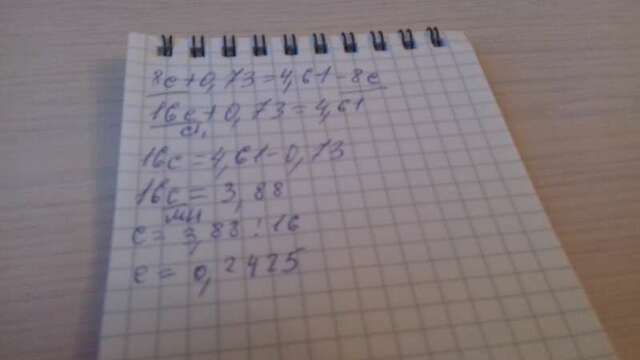 8c+0,73=4,61-8c
16c+0,73=4,61
сл.
16c=4,61-0,73
16c=3,88
мн
c=3,88:16
c=0,2425